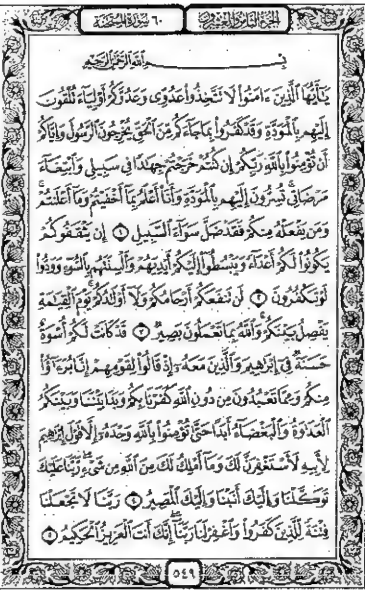 الجزء الثامن والعشرون ٦٠ سورة الممتحنة
بسم الله الرحمن الرحيم
يَٰٓأَيُّهَا ٱلَّذِينَ ءَامَنُوا۟ لَا تَتَّخِذُوا۟ عَدُوِّى وَعَدُوَّكُمْ أَوْلِيَآءَ تُلْقُونَ
إِلَيْهِم بِٱلْمَوَدَّةِ وَقَدْ كَفَرُوا۟ بِمَا جَآءَكُم مِّنَ ٱلْحَقِّ يُخْرِجُونَ ٱلرَّسُولَ وَإِيَّاكُمْ
أَن تُؤْمِنُوا۟ بِٱللَّهِ رَبِّكُمْ إِن كُنتُمْ خَرَجْتُمْ جِهَٰدًا فِى سَبِيلِى وَٱبْتِغَآءَ
مَرْضَاتِى تُسِرُّونَ إِلَيْهِم بِٱلْمَوَدَّةِ وَأَنَا۠ أَعْلَمُ بِمَآ أَخْفَيْتُمْ وَمَآ أَعْلَنتُمْ
وَمَن يَفْعَلْهُ مِنكُمْ فَقَدْ ضَلَّ سَوَآءَ ٱلسَّبِيلِ ١ إِن يَثْقَفُوكُمْ
يَكُونُوا۟ لَكُمْ أَعْدَآءً وَيَبْسُطُوٓا۟ إِلَيْكُمْ أَيْدِيَهُمْ وَأَلْسِنَتَهُم بِٱلسُّوٓءِ وَوَدُّوا۟
لَوْ تَكْفُرُونَ ٢ لَن تَنفَعَكُمْ أَرْحَامُكُمْ وَلَآ أَوْلَٰدُكُمْ يَوْمَ ٱلْقِيَٰمَةِ
يَفْصِلُ بَيْنَكُمْ وَٱللَّهُ بِمَا تَعْمَلُونَ بَصِيرٌ ٣ قَدْ كَانَتْ لَكُمْ أُسْوَةٌ
حَسَنَةٌ فِىٓ إِبْرَٰهِيمَ وَٱلَّذِينَ مَعَهُۥٓ إِذْ قَالُوا۟ لِقَوْمِهِمْ إِنَّا بُرَءَٰٓؤُا۟
مِنكُمْ وَمِمَّا تَعْبُدُونَ مِن دُونِ ٱللَّهِ كَفَرْنَا بِكُمْ وَبَدَا بَيْنَنَا وَبَيْنَكُمُ
ٱلْعَدَٰوَةُ وَٱلْبَغْضَآءُ أَبَدًا حَتَّىٰ تُؤْمِنُوا۟ بِٱللَّهِ وَحْدَهُۥٓ إِلَّا قَوْلَ إِبْرَٰهِيمَ
لِأَبِيهِ لَأَسْتَغْفِرَنَّ لَكَ وَمَآ أَمْلِكُ لَكَ مِنَ ٱللَّهِ مِن شَىْءٍ رَّبَّنَا عَلَيْكَ
تَوَكَّلْنَا وَإِلَيْكَ أَنَبْنَا وَإِلَيْكَ ٱلْمَصِيرُ ٤ رَبَّنَا لَا تَجْعَلْنَا
فِتْنَةً لِّلَّذِينَ كَفَرُوا۟ وَٱغْفِرْ لَنَا رَبَّنَآ إِنَّكَ أَنتَ ٱلْعَزِيزُ ٱلْحَكِيمُ ٥
٥٤٩